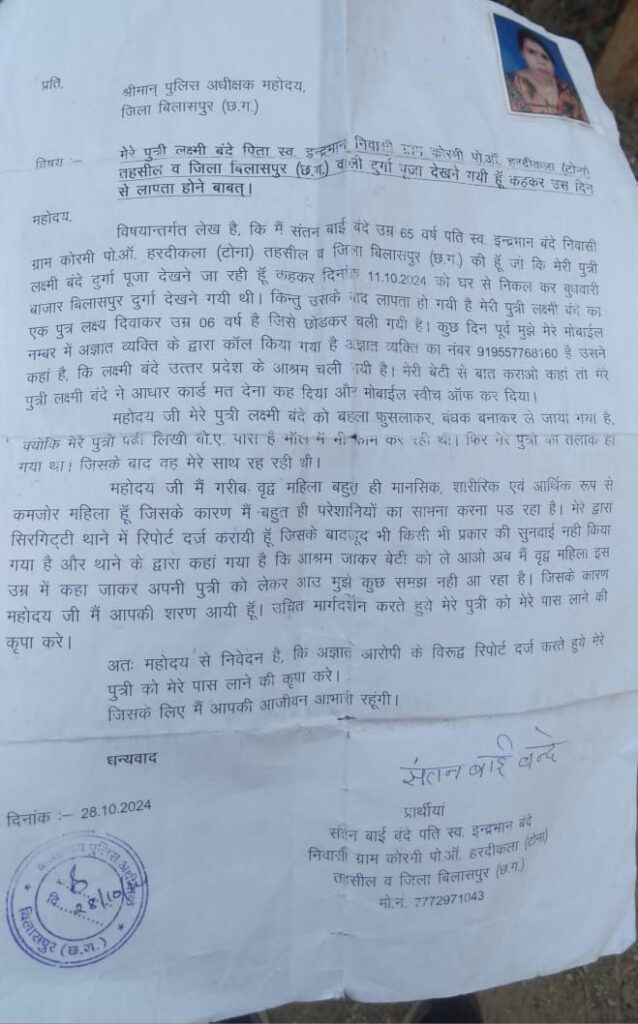 प्रति,
श्रीमान् पुलिस अधीक्षक महोदय,
जिला बिलासपुर (छ.ग.)
विषय :– मेरे पुत्री लक्ष्मी बंदे पिता स्व. इन्द्रभान निवासी ग्राम कोरमी पो.ऑ. हरदीकला (टोना)
तहसील व जिला बिलासपुर (छ.ग.) वाली दुर्गा पूजा देखने गयी हूँ कहकर उस दिन
से लापता होने बाबत्।
महोदय,
विषयान्तर्गत लेख है, कि मैं संतन बाई बंदे उम्र 65 वर्ष पति स्व. इन्द्रभान बंदे निवासी
ग्राम कोरमी पो.ऑ. हरदीकला (टोना) तहसील व जिला बिलासपुर (छ.ग.) की हूँ जो कि मेरी पुत्री
लक्ष्मी बंदे दुर्गा पूजा देखने जा रही हूँ कहकर दिनांक 11.10.2024 को घर से निकल कर बुधवारी
बाजार बिलासपुर दुर्गा देखने गयी थी। किन्तु उसके बाद लापता हो गयी है मेरी पुत्री लक्ष्मी बंदे का
एक पुत्र लक्ष्य दिवाकर उम्र 06 वर्ष है जिसे छोडकर चली गयी है। कुछ दिन पूर्व मुझे मेरे मोबाईल
नम्बर में अज्ञात व्यक्ति के द्वारा कॉल किया गया है अज्ञात व्यक्ति का नंबर 919557768160 है उसने
कहां है, कि लक्ष्मी बंदे उत्तर प्रदेश के आश्रम चली गयी है। मेरी बेटी से बात कराओ कहां तो मेरे
पुत्री लक्ष्मी बंदे ने आधार कार्ड मत देना कह दिया और मोबाईल स्वीच ऑफ कर दिया।
महोदय जी मेरे पुत्री लक्ष्मी बंदे को बहला फुसलाकर, बंधक बनाकर ले जाया गया है,
क्योंकि मेरे पुत्री पढी लिखी बी.ए. पास है मॉल में भी काम कर रही थी। फिर मेरे पुत्री का तलाक हो
गया था! जिसके बाद वह मेरे साथ रह रही थी।
महोदय जी मैं गरीब वृद्व महिला बहुत ही मानसिक, शारीरिक एवं आर्थिक रूप से
कमजोर महिला हूँ जिसके कारण मैं बहुत ही परेशानियों का सामना करना पड रहा है। मेरे द्वारा
सिरगिट्टी थाने में रिपोर्ट दर्ज करायी हूँ जिसके बावजूद भी किसी भी प्रकार की सुनवाई नही किया
गया है और थाने के द्वारा कहां गया है कि आश्रम जाकर बेटी को ले आओ अब मैं वृद्व महिला इस
उम्र में कहा जाकर अपनी पुत्री को लेकर आउ मुझे कुछ समझ नही आ रहा है। जिसके कारण
महोदय जी मैं आपकी शरण आयी हूँ। उचित मार्गदर्शन करते हुये मेरे पुत्री को मेरे पास लाने की
कृपा करे।
अतः महोदय से निवेदन है, कि अज्ञात आरोपी के विरूद्व रिपोर्ट दर्ज करते हुये मेरे
पुत्री को मेरे पास लाने की कृपा करे।
जिसके लिए मैं आपकी आजीवन आभारी रहूंगी।
धन्यवाद
संतन बाई बन्दे
दिनांक :– 28.10.2024
प्रार्थीयां
संतन बाई बंदे पति स्व. इन्द्रभान बंदे
निवासी ग्राम कोरमी पो.ऑ. हरदीकला (टोना)
तहसील व जिला बिलासपुर (छ.ग.)
मो.नं. 7772971043
पुलिस अधीक्षक
दि. 28/10
बिलासपुर (छ.ग.)